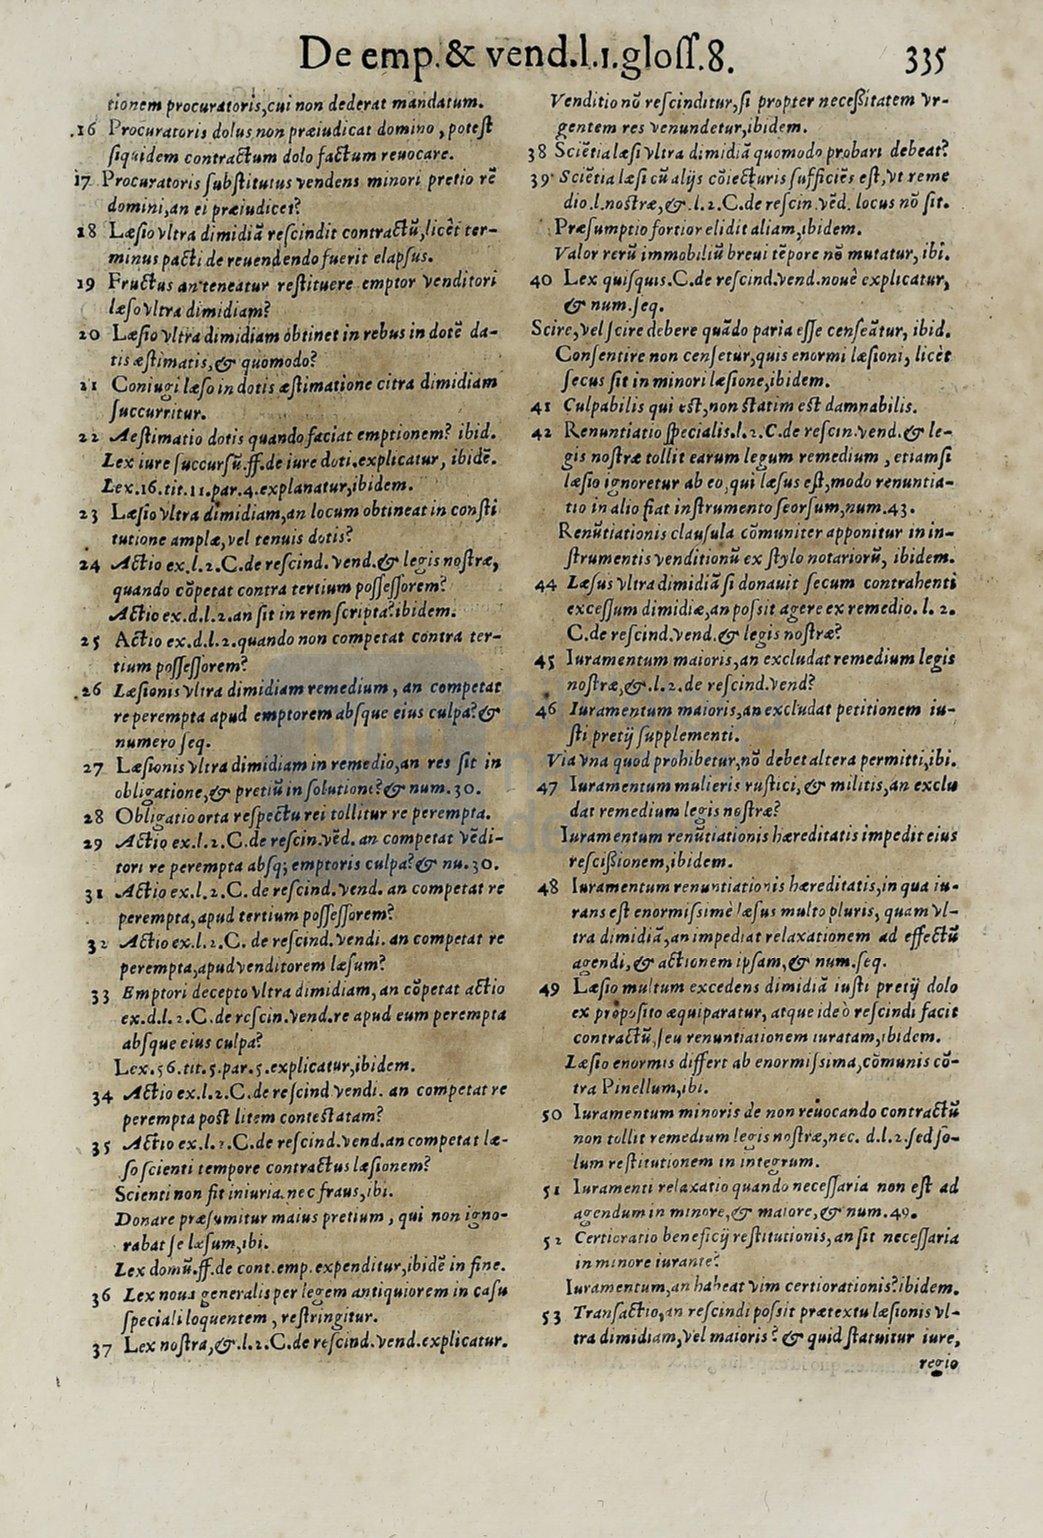 De emp. & vend.l.1.gloss.8. 335
tionem procuratoris,cui non dederat mandatum.
16 Procuratoris dolus,non præiudicat domino, potest
siquidem contractum dolo factum reuocare.
17 Procuratoris substitutus vendens minori pretio rẽ
domini,an ei præiudicet?
18 Læsio vltra dimidiã rescindit contractũ,licèt ter-
minus pacti de reuendendo fuerit elapsus.
19 Fructus an teneatur restituere emptor venditori
læso vltra dimidiam?
20 Læsio vltra dimidiam obtinet in rebus in dotẽ da-
tis æstimatis,& quomodo?
21 Coniugi læso in dotis æstimatione citra dimidiam
succurritur.
22 Aestimatio dotis quando faciat emptionem? ibid.
Lex iure succursũ.ff.de iure doti.explicatur, ibidẽ.
Lex.16.tit.11.par.4.explanatur,ibidem.
23 Læsio vltra dimidiam,an locum obtineat in consti
tutione amplæ,vel tenuis dotis?
24 Actio ex.l.2.C.de rescind.vend.& legis nostræ,
quando cõpetat contra tertium possessorem?
Actio ex.d.l.2.an sit in rem scripta?ibidem.
25 Actio ex.d.l.2.quando non competat contra ter-
tium possessorem?
26 Læsionis vltra dimidiam remedium, an competat
re perempta apud emptorem absque eius culpa?&
numero seq.
27 Læsionis vltra dimidiam in remedio,an res sit in
obligatione,& pretiũ in solutione?& num.30.
28 Obligatio orta respectu rei tollitur re perempta.
29 Actio ex.l.2.C.de rescin.vẽd. an competat vẽdi-
tori re perempta absq; emptoris culpa?& nu.30.
31 Actio ex.l.2.C. de rescind.vend. an competat re
perempta,apud tertium possessorem?
32 Actio ex.l.2.C. de rescind.vendi. an competat re
perempta,apud venditorem læsum?
33 Emptori decepto vltra dimidiam, an cõpetat actio
ex.d.l.2.C.de rescin.vend.re apud eum perempta
absque eius culpa?
Lex.56.tit.5.par.5.explicatur,ibidem.
34 Actio ex.l.2.C.de rescind vendi. an competat re
perempta post litem contestatam?
35 Actio ex.l.2.C.de rescind.vend.an competat læ-
so scienti tempore contractus læsionem?
Scienti non fit iniuria.nec fraus,ibi.
Donare præsumitur maius pretium, qui non igno-
rabat se læsum,ibi.
Lex domũ.ff.de cont.emp.expenditur,ibidẽ in fine.
36 Lex noua generalis per legem antiquiorem in casu
speciali loquentem, restringitur.
37 Lex nostra,&.l.2.C.de rescind.vend.explicatur.
Venditio nõ rescinditur,si propter necessitatem vr-
gentem res venundetur,ibidem.
38 Sciẽtia læsi vltra dimidiã quomodo probari debeat?
39 Sciẽtia læsi cũ alijs cõiecturis sufficiẽs est,vt reme
dio.l.nostræ,&.l.2.C.de rescin.vẽd. locus nõ sit.
Præsumptio fortior elidit aliam,ibidem.
Valor rerũ immobiliũ breui tẽpore nõ mutatur, ibi.
40 Lex quisquis.C.de rescind.vend.nouè explicatur,
& num.seq.
Scire,vel scire debere quãdo paria esse censeãtur, ibid.
Consentire non censetur,quis enormi læsioni, licèt
secus sit in minori læsione,ibidem.
41 Culpabilis qui est,non statim est damnabilis.
42 Renuntiatio specialis.l.2.C.de rescin.vend.& le-
gis nostræ tollit earum legum remedium, etiamsi
læsio ignoretur ab eo,qui læsus est,modo renuntia-
tio in alio fiat instrumento seorsum,num.43.
Renũtiationis clausula cõmuniter apponitur in in-
strumentis venditionũ ex stylo notariorũ, ibidem.
44 Læsus vltra dimidiã si donauit secum contrahenti
excessum dimidiæ,an possit agere ex remedio. l. 2.
C.de rescind.vend.& legis nostræ?
45 Iuramentum maioris,an excludat remedium legis
nostræ,&.l.2.de rescind.vend?
46 Iuramentum maioris,an excludat petitionem iu-
sti pretij supplementi.
Via vna quod prohibetur,nõ debet altera permitti,ibi.
47 Iuramentum mulieris rustici, & militis,an exclu
dat remedium legis nostræ?
Iuramentum renũtiationis hæreditatis impedit eius
rescissionem,ibidem.
48 Iuramentum renuntiationis hæreditatis,in qua iu-
rans est enormissimè læsus multo pluris, quam vl-
tra dimidiã,an impediat relaxationem ad effectũ
agendi,& actionem ipsam,& num.seq.
49 Læsio multum excedens dimidiã iusti pretij dolo
ex proposito æquiparatur, atque ideò rescindi facit
contractũ,seu renuntiationem iuratam,ibidem.
Læsio enormis differt ab enormissima,cõmunis cõ-
tra Pinellum,ibi.
50 Iuramentum minoris de non reuocando contractũ
non tollit remedium legis nostræ,nec. d.l.2.sed so-
lum restitutionem in integrum.
51 Iuramenti relaxatio quando necessaria non est ad
agendum in minore,& maiore,& num.49.
52 Certioratio beneficij restitutionis,an sit necessaria
in minore iurante?
Iuramentum,an habeat vim certiorationis?ibidem.
53 Transactio,an rescindi possit prætextu læsionis vl-
tra dimidiam,vel maioris? & quid statuitur iure,
regio